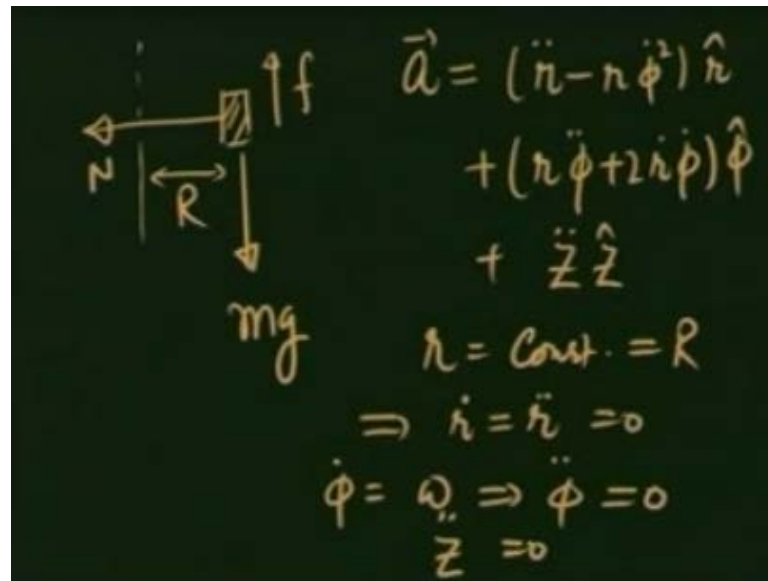 f
N
R
mg
a⃗ = (r̈ - r φ̇²) r̂
+ (r φ̈ + 2 ṙ φ̇) φ̂
+ z̈ ẑ
r = Const. = R
⇒ ṙ = r̈ = 0
φ̇ = ω ⇒ φ̈ = 0
z̈ = 0